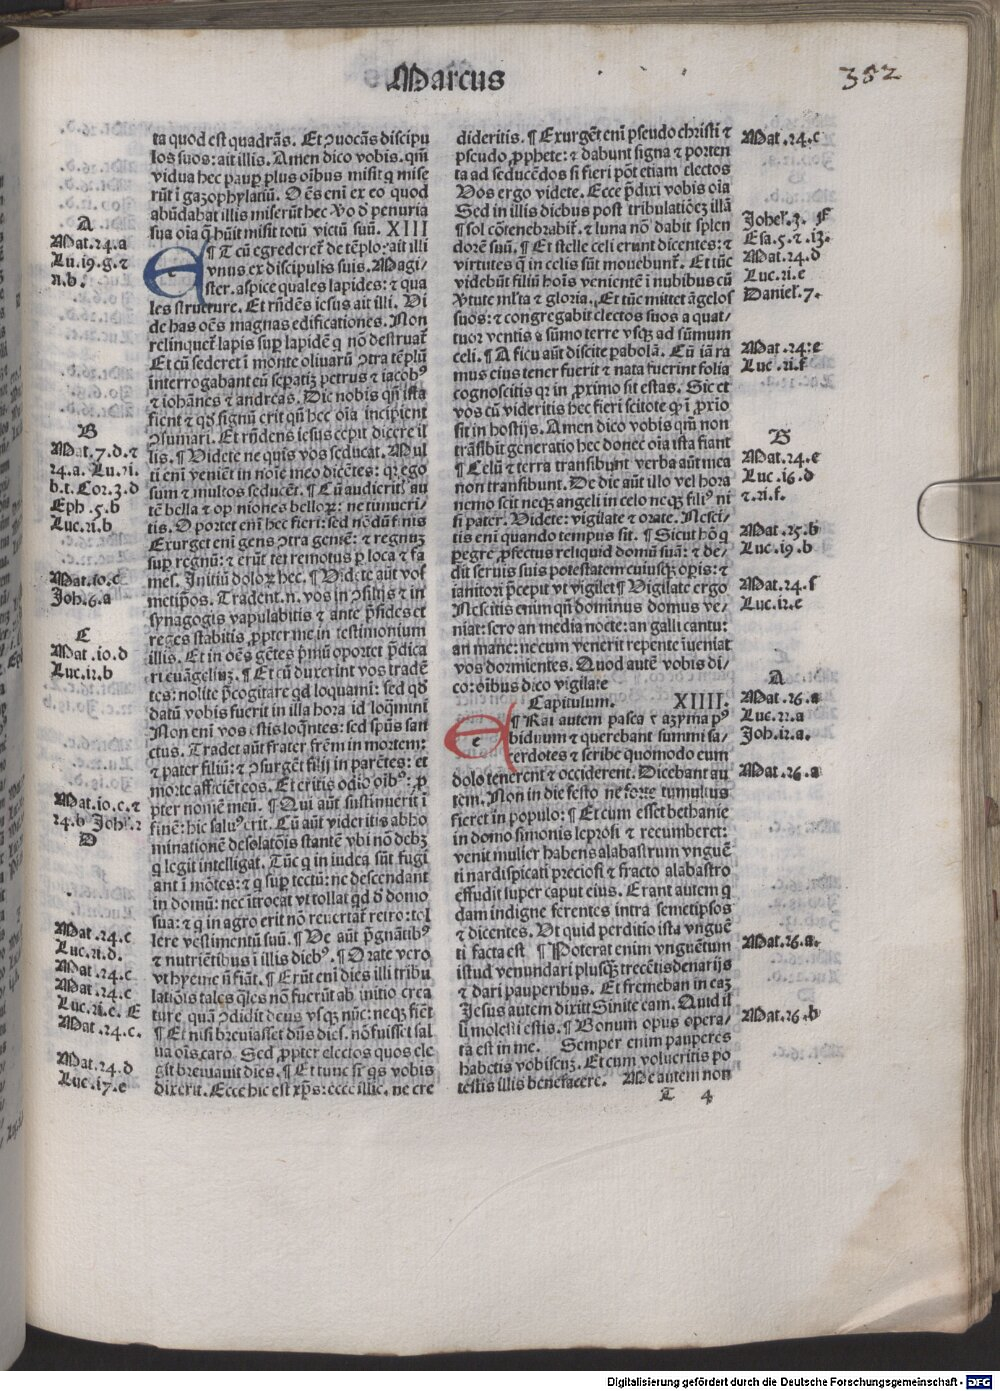 Marcus
352
ta quod est quadrãs. Et ꝯuocãs discipu
los suos: ait illis. Amen dico vobis. qm̃
vidua hec paup̲ plus oĩbus misit q̃ mise
rũt ĩ gazophylatiũ. Oẽs enĩ ex eo quod
abũdabat illis miserũt hec ꝟo d̃ penuria
sua oĩa q̃ hũit misit totũ victũ suũ. XIII
¶ T cũ egrederet̃ de tẽplo: ait illi
vnus ex discipulis suis. Magi/
ster. aspice quales lapides: ⁊ qua
les structure. Et rñdẽs iesus ait illi. Vi
de has oẽs magnas edificationes. Non
relinquet̃ lapis sup̲ lapidẽ q̃ nõ destruat̃
Et cũ sederet ĩ monte oliuarũ ꝯtra tẽplũ
ĩnterrogabant eũ sep̲atiʒ petrus ⁊ iacobꝰ
⁊ iohãnes ⁊ andreas. Dic nobis qñ ista
fient ⁊ qd̃ signũ erit qñ hec oĩa incipient
ꝯsumari. Et rñdens iesus cepit dicere il
lis. ¶ Videte ne quis vos seducat. Mul
ti enĩ veniẽt in noĩe meo dicẽtes: qꝛ ego
sum ⁊ multos seducẽt. ¶ Cũ audierit̃ au
tẽ bella ⁊ opiniones belloꝝ: ne timueri/
tis. Oportet enĩ hec fieri: sed nõdũ finis
Exurget enĩ gens ꝯtra gentẽ: ⁊ regnũ
sup̲ regnũ: ⁊ erũt terremotus p̲ loca ⁊ fa
mes. Initiũ doloꝝ hec. ¶ Videte aũt vos
metip̃os. Tradent .n. vos in ꝯsilijs ⁊ in
synagogis vapulabitis ⁊ ante p̃sides et
reges stabitis ꝓpter me in testimonium
illis. Et in oẽs gẽtes p̃mũ oportet p̃dica
ri euãgeliuʒ. ¶ Et cũ duxerint vos tradẽ
tes: nolite p̃cogitare qd̃ loquami: sed qd̃
datũ vobis fuerit in illa hora id loq̃mini
Non enĩ vos estis loq̃ntes: sed sp̃us san
ctus. Tradet aũt frater fr̃em in mortem:
⁊ pater filiũ: ⁊ ꝯsurgẽt filij in parẽtes: et
morte afficiẽt eos. Et eritis odio oĩbꝰ: ꝓ
pter nomẽ meũ. ¶ Qui aũt sustinuerit ĩ
finẽ: hic saluꝰ erit. Cũ aũt videritis abho
minationẽ desolatõis stantẽ vbi nõ debʒ
q̃ legit intelligat. Tũc q̃ in iudea sũt fugi
ant ĩ mõtes: ⁊ q̃ sup̲ tectũ: ne descendant
in domũ: nec ĩtrocat vt tollat qd̃ d̃ domo
sua: ⁊ q̃ in agro erit nõ reuertat̃ retro: tol
lere vestimentũ suũ. ¶ Ve aũt p̃gnãtibꝰ
⁊ nutriẽtibus ĩ illis diebꝰ. ¶ Orate vero
vt hyeme ñ fiãt. ¶ Erũt enĩ dies illi tribu
latiõis tales q̃les nõ fuerũt ab initio crea
ture, quã ꝯdidit deus vsqʒ nũc: neqʒ fiẽt
¶ Et nisi breuiasset dñs dies. nõ fuisset sal
ua oĩs caro. Sed ꝓpter electos quos ele
git breuiauit dies. ¶ Et tunc si q̃s vobis
dixerit. Ecce hic est xp̃s: ecce illic. ne cre
A
Mat.24.a
Lu.19.g.⁊
n.b.
B
Mat.7.d.⁊
24.a. Lu.21.
b.t. Cor.3.d
Eph.5.b
Luc.21.b
Mat.10.c
Joh.6.a
C
Mat.10.d
Luc.12.b
Mat.10.c.⁊
24.b Joh.
D
Mat.24.c
Luc.21.d.
Mat.24.c
Mat.24.c
Luc.21.e. E
Mat.24.c.
Mat.24.d
Luc.17.e
dideritis. ¶ Exurgẽt enĩ pseudo christi ⁊
pseudo ꝓphete: ⁊ dabunt signa ⁊ porten
ta ad seducẽdos si fieri põt etiam electos
Vos ergo videte. Ecce p̃dixi vobis oĩa
Sed in illis diebus post tribulatiõeʒ illã
¶ sol cõtenebrabit̃. ⁊ luna nõ dabit splen
dorẽ suũ. ¶ Et stelle celi erunt dicentes: ⁊
virtutes q̃ in celis sũt mouebunt̃. Et tũc
videbũt filiũ hoĩs venientẽ ĩ nubibus cũ
ꝟtute ml̃ta ⁊ gloria. ¶ Et tũc mittet ãgelos
suos: ⁊ congregabit electos suos a quat/
tuor ventis a sũmo terre vsqʒ ad sũmum
celi. ¶ A ficu aũt discite p̲abolã. Cũ iã ra
mus eius tener fuerit ⁊ nata fuerint folia
cognoscitis qꝛ in ꝓximo sit estas. Sic et
vos cũ videritis hec fieri scitote qꝛ ĩ ꝓxĩo
sit in hostijs. Amen dico vobis qm̃ non
trãsibit generatio hec donec oĩa ista fiant
¶ Celũ ⁊ terra transibunt verba aũt mea
non transibunt. De die aũt illo vel hora
nemo scit neqʒ angeli in celo neqʒ filiꝰ ni
si pater. Videte: vigilate ⁊ orate. Nesci/
tis eni quando tempus sit. ¶ Sicut hõ q̃
p̲egre ꝓfectus reliquid domũ suã: ⁊ de/
dit seruis suis potestatem cuiusqʒ op̲is: ⁊
ianitori p̃cepit vt vigilet ¶ Vigilate ergo
Nescitis enim qñ dominus domus ve/
niat: sero an media nocte: an galli cantu:
an mane: ne cum venerit repente ĩueniat
vos dormientes. Quod autẽ vobis di/
co: oĩbus dico vigilate
Capitulum. XIIII.
¶ Rat autem pasca ⁊ azyma pꝰ
biduum ⁊ querebant summi sa/
cerdotes ⁊ scribe quomodo eum
dolo tenerent ⁊ occiderent. Dicebant au
tem. Non in die festo ne forte tumultus
fieret in populo: ¶ Et cum esset bethanie
in domo simonis leprosi ⁊ recumberet:
venit mulier habens alabastrum vnguẽ
ti nardi spicati preciosi ⁊ fracto alabastro
effudit super caput eius. Erant autem q̃
dam indigne ferentes intra semetipsos
⁊ dicentes. Vt quid perditio ista vnguẽ
ti facta est ¶ Poterat enim vnguẽtum
istud venundari plusqʒ trecẽtis denarijs
⁊ dari pauperibus. Et fremebant in eaʒ
Jesus autem dixitt Sinite eam. Quid il
li molesti estis. ¶ Bonum opus opera/
ta est in me. Semper enim pauperes
habetis vobiscuʒ. Et cum volueritis po
testis illis benefacere. Me autem non
Mat.24.c
Johel.3. F
Esa.5.⁊.13.
Mat.24.d
Luc.21.e
Daniel.7.
Mat.24.e
Luc.21.f
B
Mat.24.e
Luc.16.d
⁊.21.f.
Mat.25.b
Luc.19.b
Mat.24.f
Luc.12.e
A
Mat.26.a
Luc.22.a
Joh.12.a.
Mat.26.a
Mat.26.a.
Mat.26.b
T 4
Digitalisierung gefördert durch die Deutsche Forschungsgemeinschaft - DFG